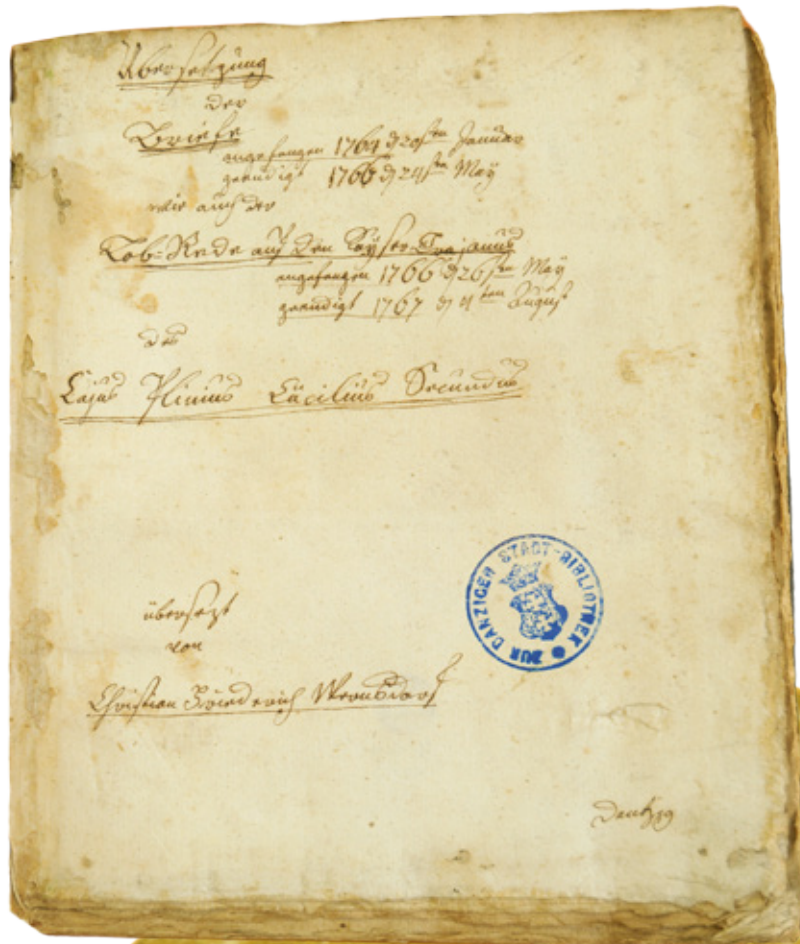 Übersetzung
der
Briefe
angefangen 1764 d 20sten Januar
geendigt 1766 d 24sten May
wie auch der
Lob-Rede auf den Kayser Trajanus
angefangen 1766 d 26sten May
geendigt 1767 d 11ten August
des
Cajus Plinius Cäcilius Secundus
übersezt
von
Christian Friederich Wernsdorf
ZUR DANZIGER STADT-BIBLIOTHEK